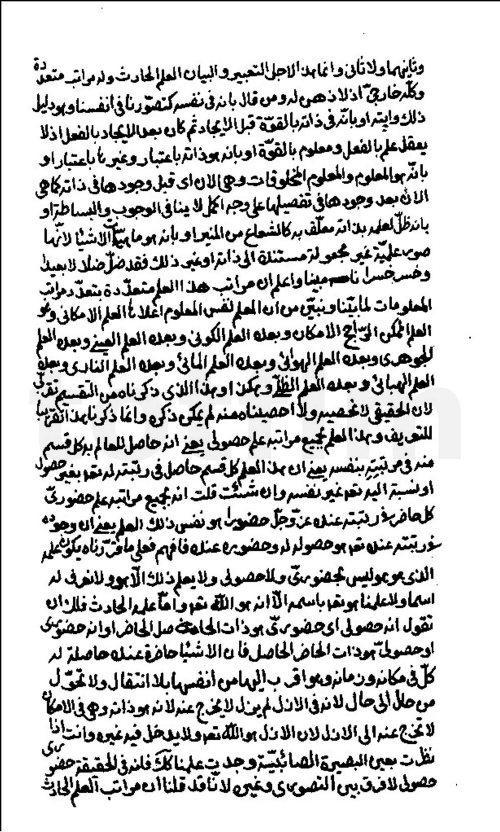 وثانيهما ولا ثاني وانما هذا لاجل التعبير والبيان العلم الحادث وله مراتب متعددة
وكله خارجي اذ لا ذهن له ومن قال بانه في نفسه كتصورنا في انفسنا وهو دليل
ذلك وايته او بانه في ذاته بالقوة قبل الايجاد ثم كان بعد الايجاد بالفعل اذ لا
يعقل علم بالفعل ومعلوم بالقوة او بانه هو ذاته باعتبار وغيرنا باعتبار او
بانه هو المعلوم والمعلوم المخلوقات وهي الان اي قبل وجودها في ذاته كما هي
الان بعد وجودها في تفصيلها على وجه اكمل لا ينافي الوجوب والبساطة او
بانه ظل لعلمه بذاته معلق به كالشعاع من المنير او بانه هو ماهية الاشياء لانها
صور علمية غير مجعولة مستندة الى ذاته او غير ذلك فقد ضل ضلالا بعيدا
وخسر خسرانا مبينا واعلم ان مراتب هذا العلم متعددة بتعدد مراتب
المعلومات لما بيّنا ونبيّن من ان العلم نفس المعلوم اعلاها العلم الامكاني وهو
العلم الممكن الراجح الامكان وبعده العلم الكوني وبعده العلم العيني وبعده العلم
الجوهري وبعده العلم الهوائي وبعده العلم المائي وبعده العلم الناري وبعده
العلم الهبائي وبعده العلم الظلي وهكذا وهذا الذي ذكرناه من التقسيم تقريبي
لان الحقيقي لا نحصيه ولا احصيناه منه لم يمكن ذكره وانما ذكرنا هذا تقريبا
للتعريف وهذا العلم بجميع مراتبه علم حصولي يعني انه حاصل للعالم به كل قسم
منه في مرتبته بنفسه يعني ان هذا العلم كل قسم حاصل في رتبته له تعم بغير حصول
او نسبة اليه تعم غير نفسه وان شئت قلت انه بجميع مراتبه علم حضوري
كل حاضر في رتبته عنده عز وجل حضورا هو نفس ذلك العلم يعني ان وجوده
في رتبته عنده تعم هو حصوله له وحضوره عنده فافهم فعلى ما قررناه يكون علمه
الذي هو هو ليس بحضوري ولا حصولي ولا يعلم ذلك الا هو ولا نعرف له
اسما ولا علمنا هو تعم باسمه الا انه هو الله تعم واما علمه الحادث فلك ان
تقول انه حصولي اي حضوري هو ذات الحاصل الحاضر او انه حضوري
او حصولي هو ذات الحاضر الحاصل فان الاشياء حاضرة عنده حاصلة له
كل في مكانه وزمانه وهو اقرب اليها من انفسها بلا انتقال ولا تحول
من حال الى حال لانه في الازل لم يزل لا يخرج عنه لانه هو ذاته وهي في الامكان
لا تخرج عنه الى الازل لان الازل هو الله تعم ولا يدخل فيه غيره وانت اذا
نظرت بعين البصيرة الصائبية وجدت علمنا كك فانه في الحقيقة حضوري
حصولي لا فرق بين التصوري وغيره لانا قد قلنا ان مراتب العلم الحادث